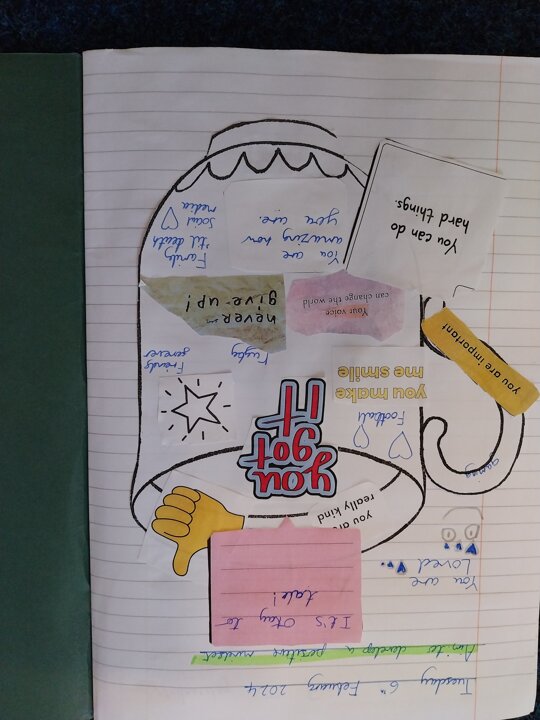 Tuesday 6th February 2024
Aim: to develop a positive mindset
It's Okay to
talk!
You are
Loved
you are
really kind
gaming
you
got
IT
Football
you make
me smile
Rugby
Friends
forever
you are important
Your voice
can change the world
never
give-up!
You can do
hard things.
You are
amazing how
you are.
Family 'til death
Social
media